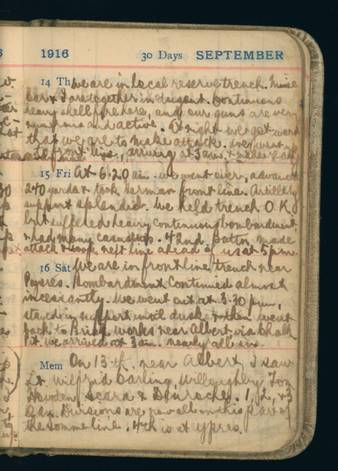 1916 30 Days SEPTEMBER
14 Th We are in local reserve trench.
& I are together in dugout. Continuous
heavy shell fire here, and our guns are very
numerous and active. At night we get word
that we are to make attack. We went up
to front line, arriving at 3 a.m.
15 Fri At 6.20 a.m. we went over, advanced
240 yards & took German front line. Artillery
support splendid. We held trench O.K.
but suffered heavy continuous bombardment
& had many casualties. 42nd Battn. made
attack & took next line ahead of us at 5 p.m.
16 Sat We are in front line trench near
Bombardment continued almost
incessantly. We went out at 8-30 p.m.,
stand in support until dusk & then went
back to Brick works near Albert, via Chalk
Pit. We arrived at 3 a.m. nearly all in.
Mem On 13th, near Albert, I saw
Lt Wilfrid Darling, Willoughby, Tom
1, 2, & 3
Can. Divisions are now all on this part of
the Somme line. 4th is at Ypres.